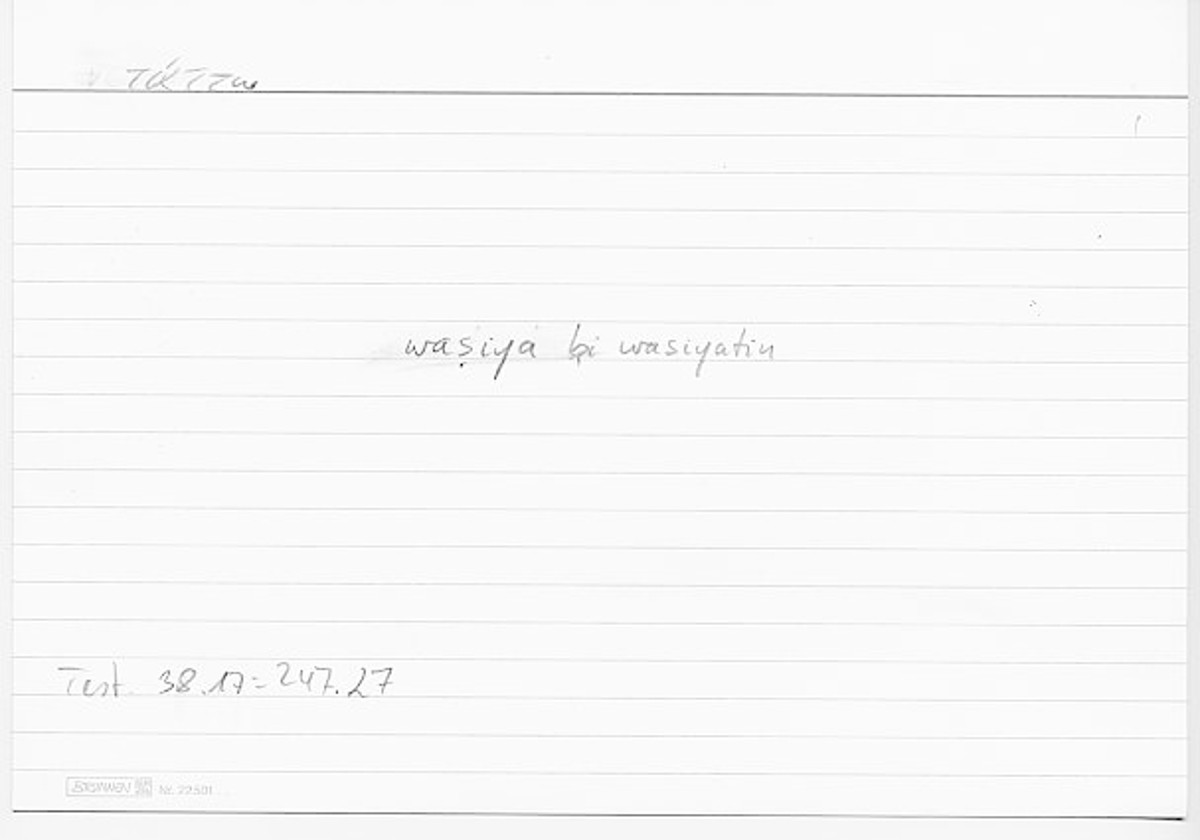 τάττω
waṣiya bi wasiyatin
Test. 38.17 = 247.27
BRUNNEN Nr. 22501